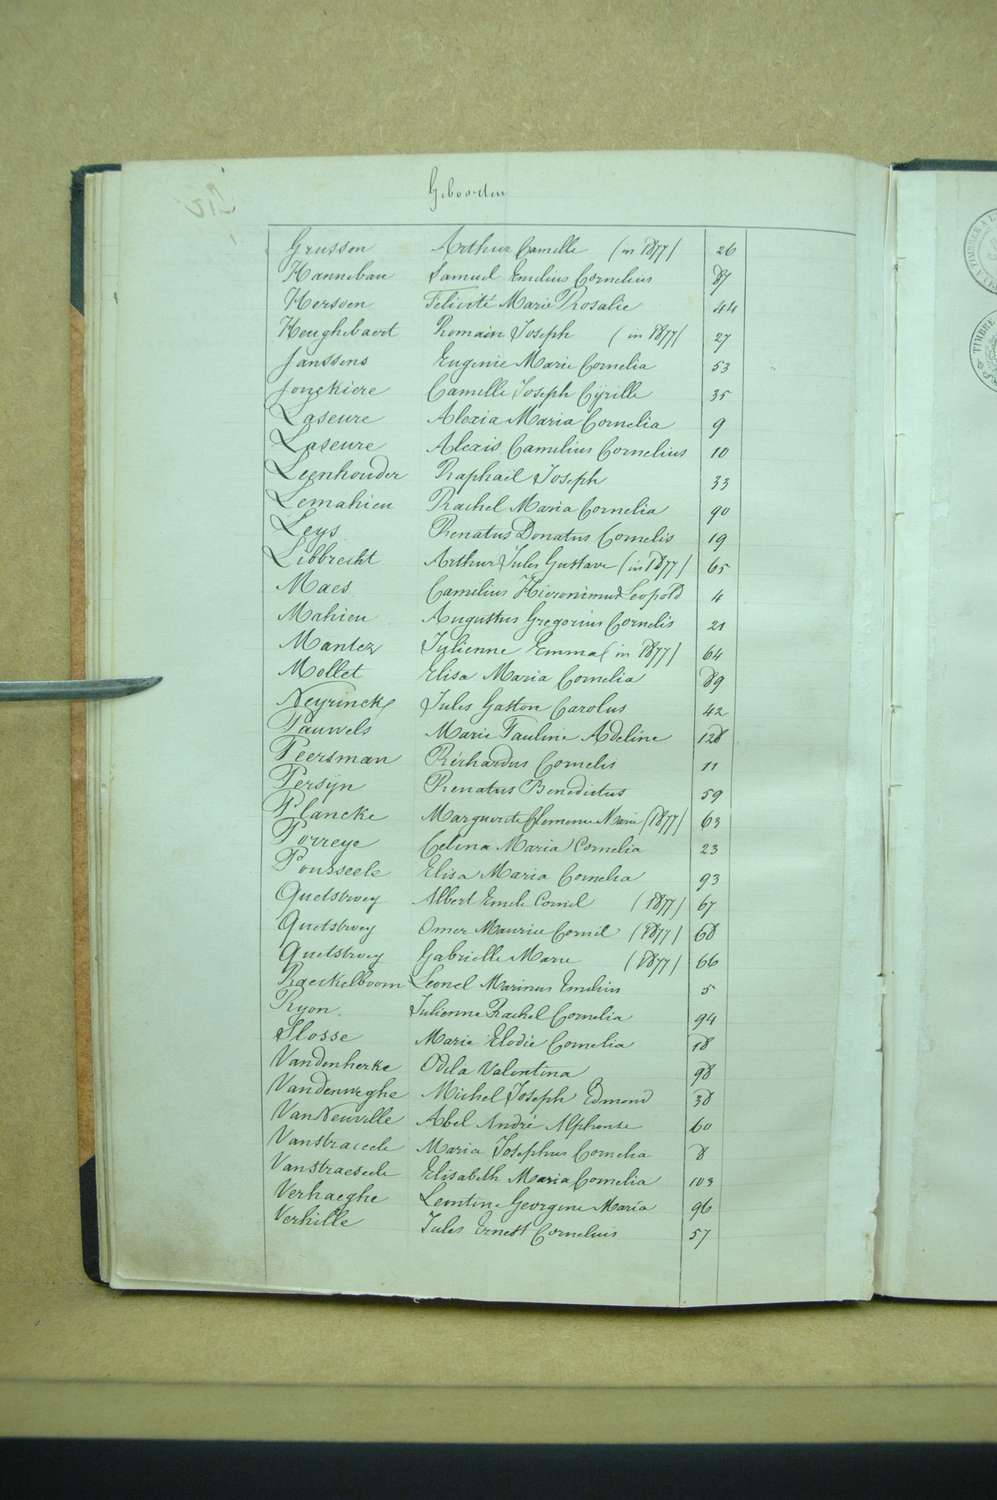 Geboorten
Grusson Arthur Camille (in 1877) 26
Hannebau Samuel Emilius Cornelius 87
Hersoen Felicité Marie Rosalie 44
Heughebaert Romain Joseph (in 1877) 27
Janssens Eugenie Marie Cornelia 53
Jonckiere Camille Joseph Cÿrille 35
Laseure Alexia Maria Cornelia 9
Laseure Alexis Camilius Cornelius 10
Leenhouder Raphaël Joseph 33
Lemahieu Rachel Maria Cornelia 90
Leys Renatus Donatus Cornelis 19
Libbrecht Arthur Jules Gustave (in 1877) 65
Maes Camelius Hieronimus Leopold 4
Mahieu Augustus Gregorius Cornelis 21
Mantez Julienne Emma (in 1877) 64
Mollet Elisa Maria Cornelia 89
Neyrinck Jules Gaston Carolus 42
Pauwels Marie Pauline Adeline 128
Peersman Richardus Cornelis 11
Persijn Renatus Benedictus 59
Plancke Marguerite Clemence Marie (1877) 63
Porreye Celina Maria Cornelia 23
Pousseele Elisa Maria Cornelia 93
Quetstroey Albert Emile Cornil (1877) 67
Quetstroey Omer Maurice Cornil (1877) 68
Quetstroey Gabrielle Marie (1877) 66
Raeckelboom Leonel Marinus Emilius 5
Ryon Julienne Rachel Cornelia 94
Slosse Marie Elodie Cornelia 18
Vandenherke Odila Valentina 98
Vandenweghe Michel Joseph Edmond 38
VanNeuville Abel André Alphonse 60
Vanstraceele Maria Josephus Cornelia 8
Vanstraesele Elisabeth Maria Cornelia 103
Verhaeghe Leontine Georgine Maria 96
Verhille Jules Ernest Cornelius 57